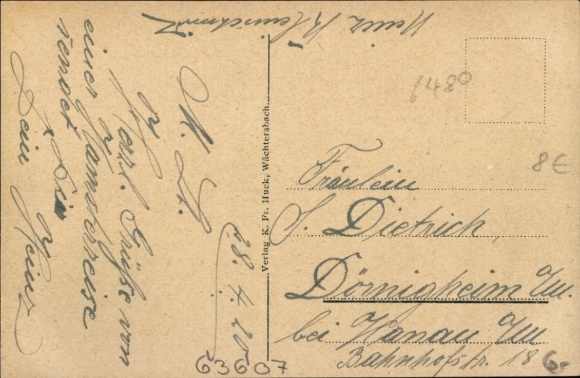 M. L.
28.4.20
Herzl. Grüße von
einer Hamsterreise
sendet Dir
Dein Heinz
Heinz
Verlag K. Fr. Huck, Wächtersbach.
6480
8€
Fräulein
S. Dietrich,
Dörnigheim a/M.
bei Hanau a/M
Bahnhofstr. 18
63607
6,-